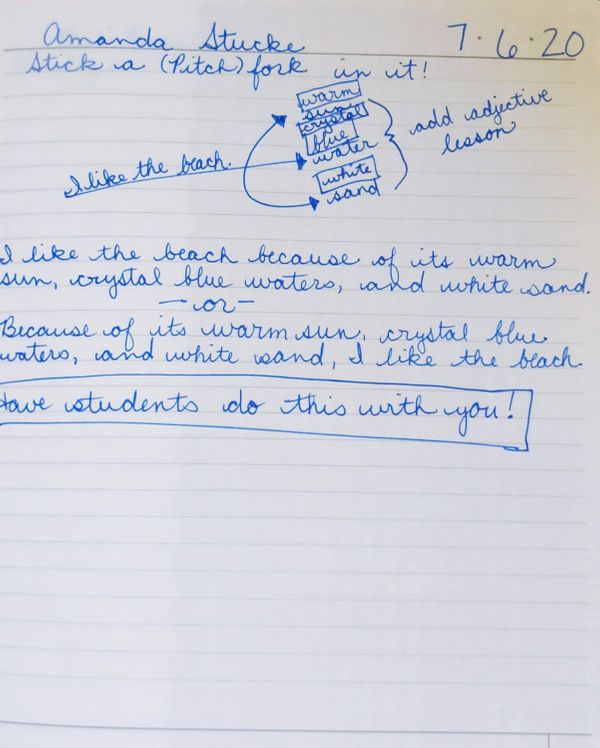 Amanda Stucke 7.6.20
Stick a (Pitch) fork in it!
warm
sun
crystal
blue
water
white
sand
add adjective
lesson
I like the beach.
I like the beach because of its warm
sun, crystal blue waters, and white sand.
-or-
Because of its warm sun, crystal blue
waters, and white sand, I like the beach.
Have students do this with you!